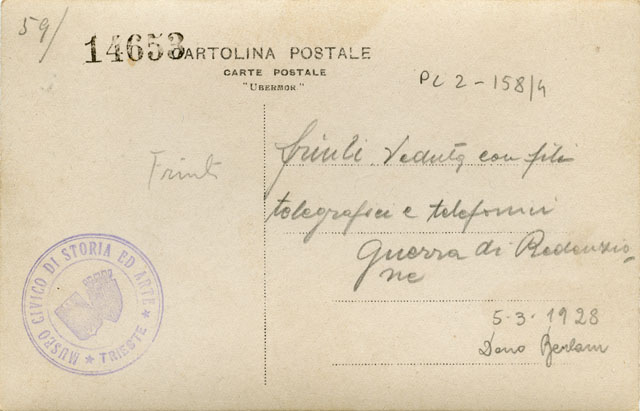 59/
14653
CARTOLINA POSTALE
CARTE POSTALE
"UBERMOR"
PL 2-158/4
Friuli
Friuli Veduta con fili
telegrafici e telefonici
Guerra di Redenzio-
ne
5-3-1928
Dono
MUSEO CIVICO DI STORIA ED ARTE
★ TRIESTE ★